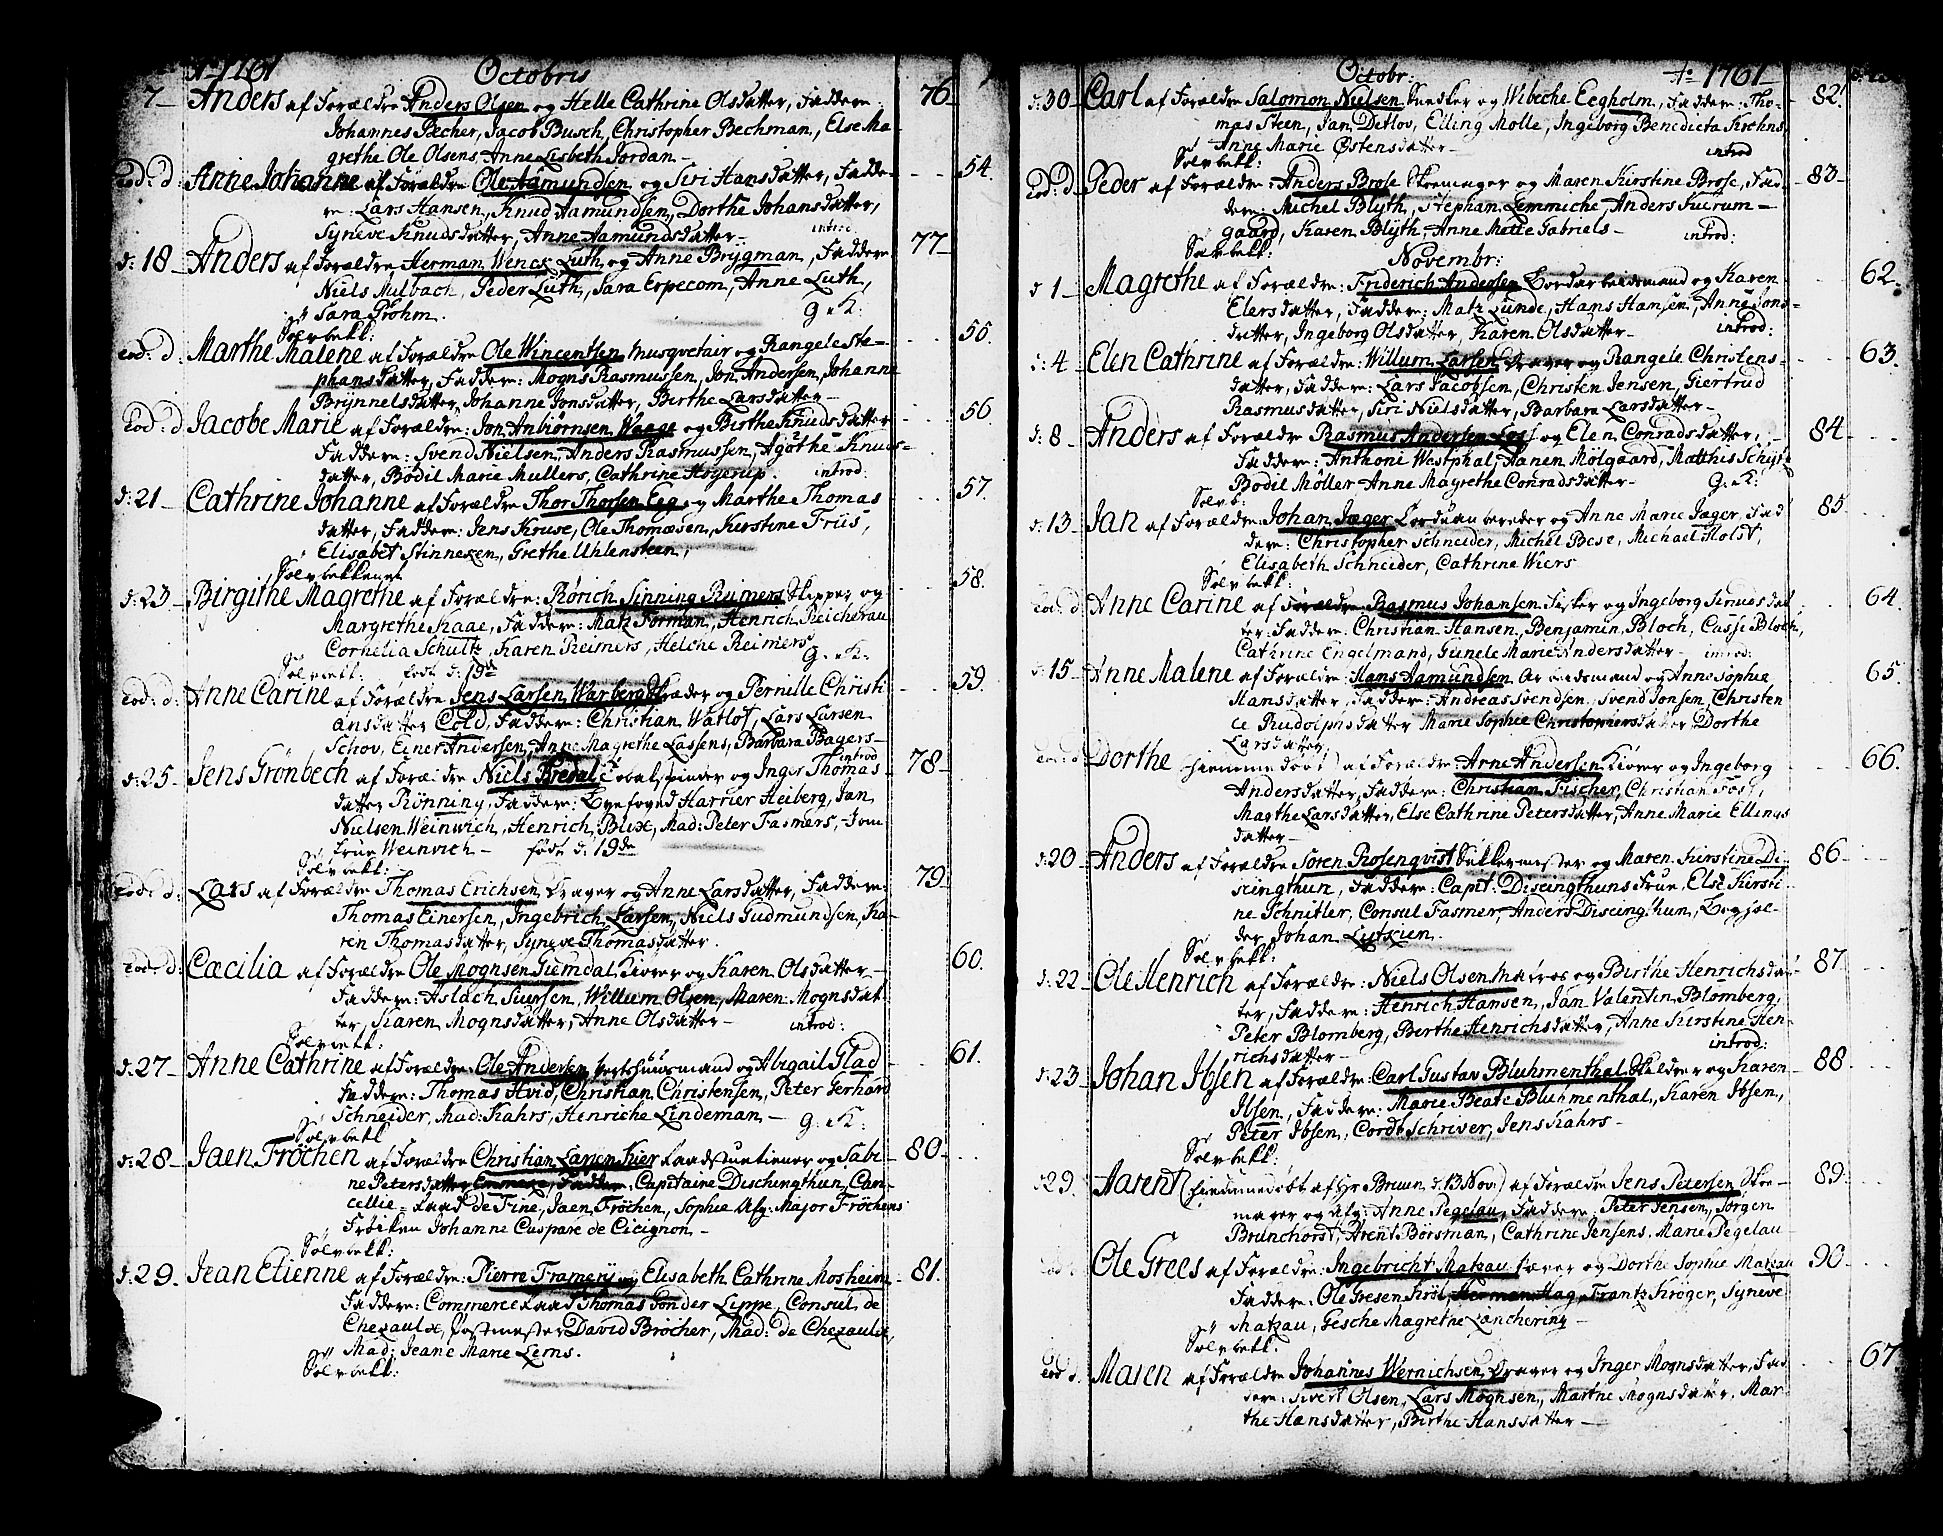 Ao 1761 Octobris
7 Anders af Forældre Anders Olsen og Helle Cathrine Olsdatter, Faddere: 76
Johannes Pecher, Jacob Busch, Christopher Bechman, Else Ma-
grethe Ole Olsens, Anne Lisbeth Jordan
Eod: d: Anne Johanne af Forældre Ole Aamundsen og Siri Hansdatter, Fadde- 54.
re: Lars Hansen, Knud Aamundsen, Dorthe Johansdatter,
Syneve Knudsdatter, Anne Aamundsdatter introd:
d: 18 Anders af Forældre Herman Wenck Luth og Anne Brygman, Faddere 77
Niels Mulbach, Peder Luth, Sara Erpecom, Anne Luth,
Sara Prohm. g. K:
Sølvbekk:
Eod: d: Marthe Malene af Forældre Ole Wincentsen Musqvetair og Rangele Ste- 55.
phansdatter, Faddere: Mogns Rasmussen, Jon Andersen, Johanne
Brynnelsdatter, Johanne Jonsdatter, Birthe Larsdatter
Eod: d: Jacobe Marie af Forældre: Jon Anbiørnsen Waage og Birthe Knudsdatter 56
Faddere: Svend Nielsen, Anders Rasmussen, Agothe Knuds-
datter, Bodil Marie Mullers, Cathrine Høyerup. introd:
d: 21 Cathrine Johanne af Forældre Thor Thorsen Eeg og Marthe Thomas 57.
datter, Faddere: Jens Kruse, Ole Thomæsen, Kirstine Friis,
Elisabet Stinnexen, Grethe Uhlensteen,
Sølvbekkenet
d: 23 Birgithe Magrethe af Forældre: Rørich Sinning Reimers Skipper og 58.
Margrethe Kaae, Faddere: Matz Forman, Henrich Reicherau
Cornelia Schultz, Karen Reimers, Helche Reimers g. K.
Sølvbekk: født d: 19de
Eod: d: Anne Carine af Forældre Jens Larsen Warberg og Pernille Christi 59.
ansdatter Cold, Faddere: Christian Watlof, Lars Larsen
Schov, Einer Andersen, Anne Magrethe Lassens, Barbara Bagers
introd
d: 25 Jens Grønbech af Forældre Niels Bredal Tobakspinder og Inger Thomas 78
datter Rønning, Faddere: Harrier Heiberg, Jan
Nielsen Weinwich, Henrich Blix, Mad: Peter Fasmers, Jom
frue Weinvich født d: 19de
Sølvbekk:
Eod: d: Lars af Forældre Thomas Erichsen Drager og Anne Larsdatter, Faddere: 79
Thomas Einersen, Ingebrich Larsen, Niels Gudmundsen, Ka-
ren Thomasdatter, Syneve Thomasdatter.
Eod: d: Cæcilia af Forældre Ole Mognsen Giemdal Kiører og Karen Olsdatter 60.
Faddere: Aslach Siursen, Willum Olsen, Maren Mognsdat
ter, Karen Mognsdatter, Anne Olsdatter introd:
Sølvbekk:
d: 27 Anne Cathrine af Forældre: Ole Andersen og Abigail Glad 61.
Faddere: Thomas Hvid, Christian Christensen, Peter Gerhard
Schneider, Mad: Kahrs, Henriche Lindeman g. K:
Sølvbekk
d: 28 Jaen Frøchen af Forældre Christian Larsen Kier og Sabi 80
ne Petersdatter Faddere: Capitaine Dischingthun, Can-
cellie-Raad de Fine, Jaen Frøchen, Sophie Major Frøchens
Frøiken Johanne Caspare de Cicignon
Sølvbekk:
d: 29. Jean Etienne af Forældre: Pierre Framery og Elisabeth Cathrine Mosheim 81.
Faddere: Commerce Raad Thomas von der Lippe, Consul de
Chezaulx, Postmester David Brøcher, Mad: de Chezaulx,
Mad: Jeane Marie Lerns.
Sølvbekk:
Octobr: Ao 1761
d: 30 Carl af Forældre Salomon Nielsen Snedker og Wibeche Eegholm, Faddere: Tho- 82.
mas Steen, Jan Detlov, Elling Molle, Ingeborg Benedicta Krohns
Anne Marie Østensdatter introd
Sølvbekk:
Eod: d Peder af Forældre: Anders Brose Skomager og Maren Kirstine Brose, Fad- 83
dere: Michel Blyth, Stephan Lemmiche, Anders Fuerum-
gaard, Karen Blyth, Anne Mette Gabriels introd:
Sølvbekk:
Novembr:
d 1 Magrethe af Forældre: Friderich Andersen og Karen 62.
Elersdatter, Faddere: Matz Sunde, Hans Hansen, Anne Jons-
datter, Ingeborg Olsdatter, Karen Olsdatter introd:
d: 4 Elen Cathrine af Forældre: Willum Larsen Drager og Rangele Christens- 63.
datter, Faddere: Lars Jacobsen, Christen Jensen, Giertrud
Rasmusdatter, Siri Nielsdatter, Barbara Larsdatter
d: 8 Anders af Forældre Rasmus Andersen Løs og Elen Conradsdatter, 84
Faddere: Anthoni Westphal, Aanen Mølgaard, Matthis
Bodil Møller Anne Magrethe Conradsdatter g. K:
Sølvb:
d: 13 Jan af Forældre: Johan Jæger og Anne Marie Jæger, Fad 85.
dere: Christopher Schneider, Michel Bese, Michael Holst,
Elisabeth Schneider, Cathrine Wiers
Sølvbekk:
Eod: d Anne Carine af Forældre Rasmus Johansen Fisker og Ingeborg Knudsdat 64.
ter: Faddere: Christian Hansen, Benjamin Bloch, Cassi Bloch,
Cathrine Engelmand, Gunele Marie Andersdatter introd:
d: 15 Anne Malene af Forældre: Hans Aamundsen og Anne Sophie 65.
Hansdatter, Faddere: Andreas Svendsen, Svend Jonsen, Christen
ce Rudolphsdatter Marie Sophie Christophersdatter Dorthe
Larsdatter.
Eod: d Dorthe (hiemmedøbt) af Forældre: Arne Andersen Kiører og Ingeborg 66.
Andersdatter, Faddere: Christian Fischer, Christian Foss,
Marthe Larsdatter, Else Cathrine Petersdatter, Anne Marie Ellings
datter
d: 20 Anders af Forældre Søren Rosenqvist Sukkermester og Maren Kirstine Di- 86
scingthun, Faddere: Capit: Discingthuns Frue, Else Kirsti-
ne Schnitler, Consul Fasmer, Anders Discingthun, Bog-
der Johan Lutxien.
Sølvbekk:
d: 22 Ole Henrich af Forældre: Niels Olsen Matros og Birthe Henrichsdat- 87
ter, Faddere: Henrich Hansen, Jan Valentin Blomberg,
Peter Blomberg, Birthe Henrichsdatter, Anne Kirstine Hen-
richsdatter introd:
d: 23 Johan Ibsen af Forældre: Carl Gustav Bluhmenthal Skilderer og Karen 88
Ibsen, Faddere: Marie Beate Bluhmenthal, Karen Ibsen,
Peter Ibsen, Cordt Schriver, Jens Kahrs
Sølvbekk:
d 29. Aarent hiemmedøbt af Hr Bruun d. 13 Nov:) af Forældre Jens Petersen Sko- 89
mager og Anne Pegelau, Faddere: Peter Jensen, Jørgen
Brunchorst, Arent Børsman, Cathrine Jensens, Marie Pegelau
Sølvbekk:
Eod: Ole Grees af Forældre: Ingebricht Matzau og Dorthe Sophie Matzau 90
Faddere: Ole Gresen Krøl, Herman Hag, Frantz Krøger, Syneve
Matzau, Gesche Magrethe Lanchering
Sølvbekk.
Eod d. Maren af Forældre Johannes Wernichsen Drager og Inger Mognsdatter, Fad 67
dere: Sivert Olsen, Lars Mognsen, Marthe Mognsdatter, Mar
the Hansdatter, Birthe Hansdatter